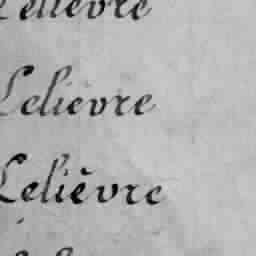 Lelievre
Lelievre
Lelièvre